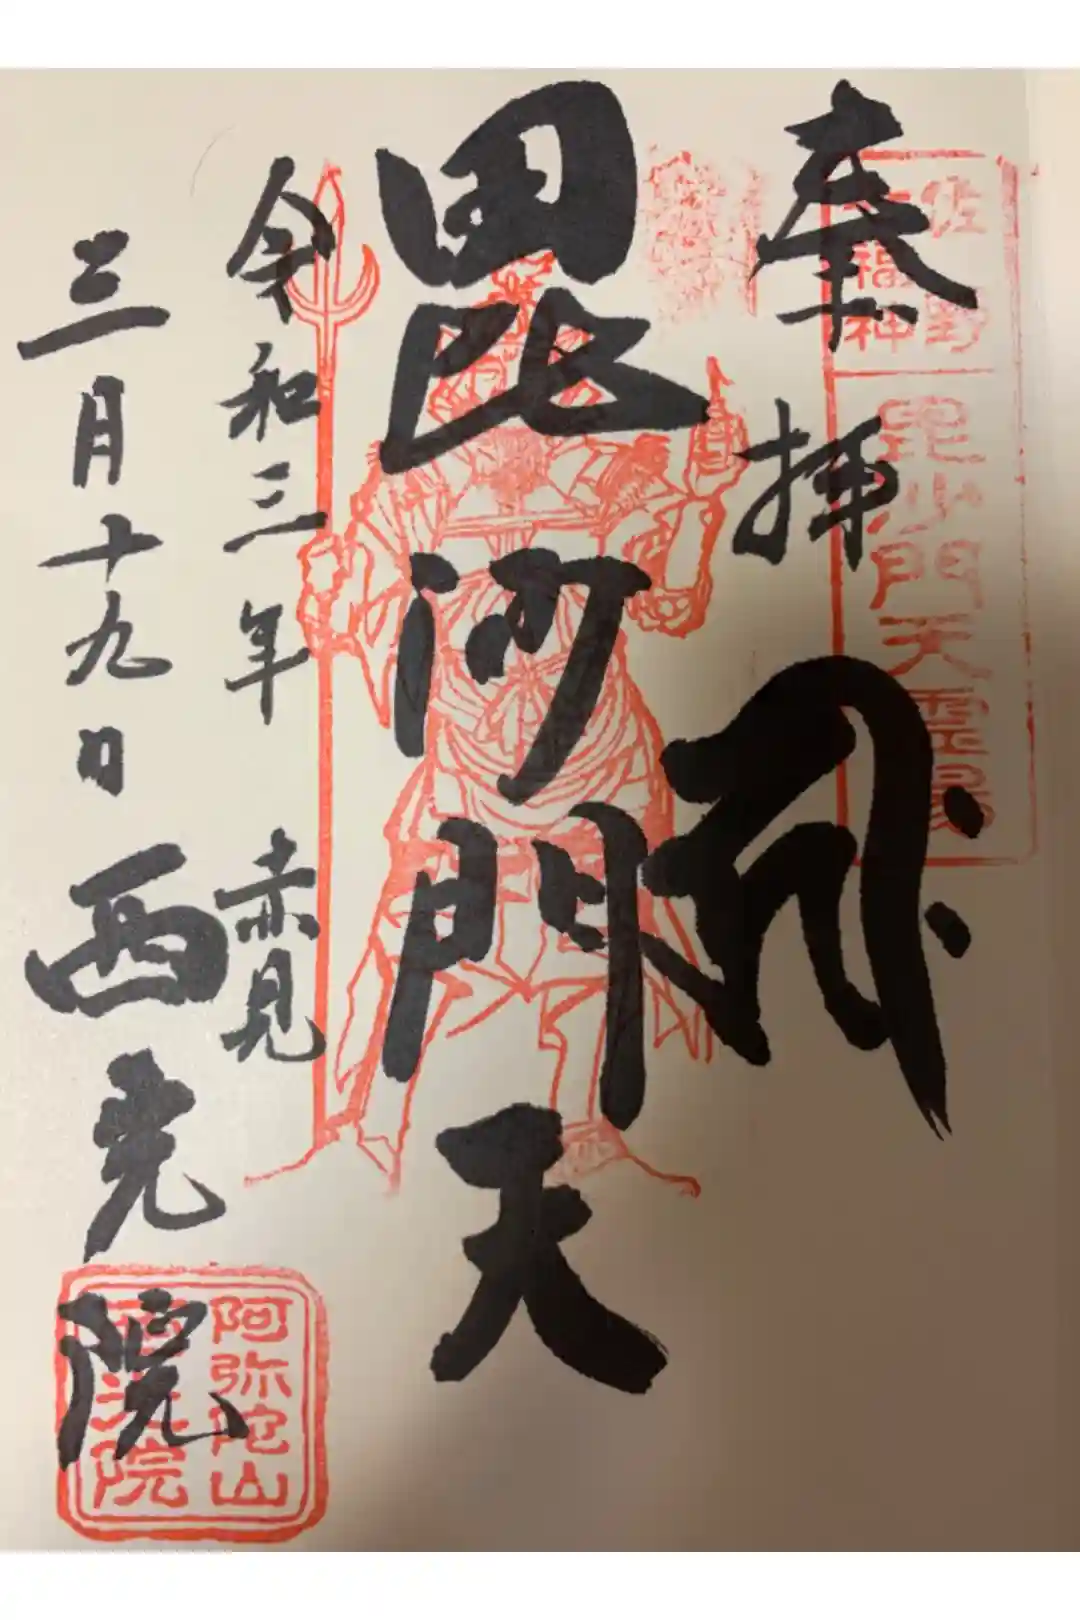 奉拝
毘沙門天
令和三年 赤見
三月十九日 西光院
佐野
七福神
毘沙門天霊場
阿弥陀山
西光院